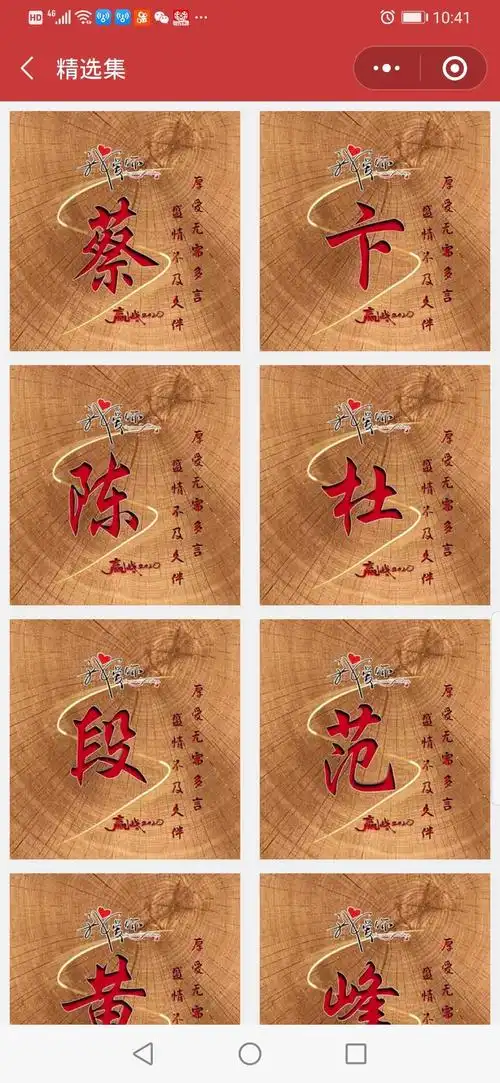 HD 4G 10:41
精选集
我爱你
蔡
厚爱无需多言
盛情不及久伴
赢战2020
我爱你
卞
厚爱无需多言
盛情不及久伴
赢战2020
我爱你
陈
厚爱无需多言
盛情不及久伴
赢战2020
我爱你
杜
厚爱无需多言
盛情不及久伴
赢战2020
我爱你
段
厚爱无需多言
盛情不及久伴
赢战2020
我爱你
范
厚爱无需多言
盛情不及久伴
赢战2020
我爱你
黄
厚爱无需多
盛情不
我爱你
峰
厚爱无需多
盛情不